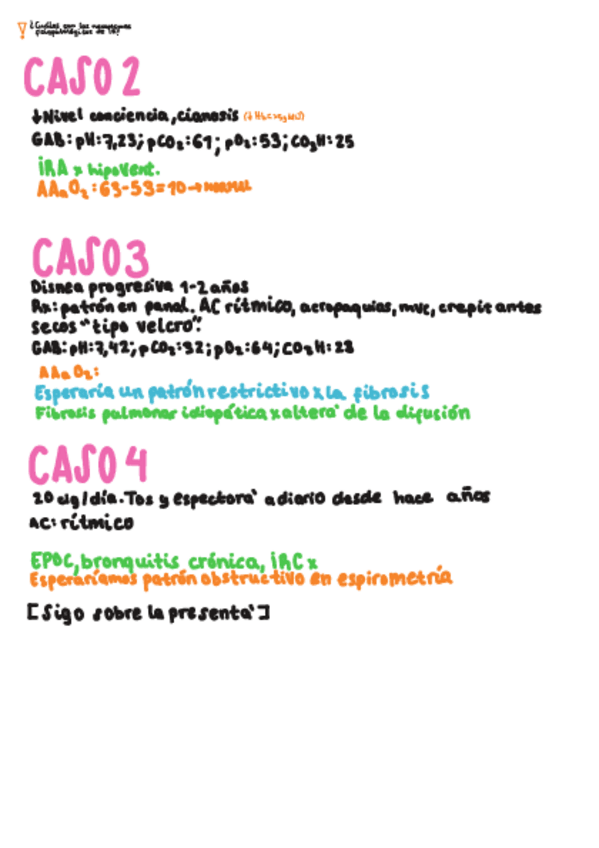 ¿Cuáles son los mecanismos
fisiopatológicos de IR?
CASO 2
↓Nivel conciencia, cianosis
GAB: pH:7,23; pCO₂:61; pO₂:53; CO₃H:25
IRA x hipovent.
AAaO₂:63-53=10→NORMAL
CASO 3
Disnea progresiva 1-2 años
Rx: patrón en panal. AC rítmico, acropaquias, mvc, crepitantes
secos "tipo velcro".
GAB: pH:7,42; pCO₂:32; pO₂:64; CO₃H:28
AAaO₂:
Esperaría un patrón restrictivo x la fibrosis
Fibrosis pulmonar idiopática x altera' de la difusión
CASO 4
20 cig/día. Tos y espectora' a diario desde hace años
AC: rítmico
EPOC, bronquitis crónica, IRC x
Esperaríamos patrón obstructivo en espirometría
[Sigo sobre la presenta']